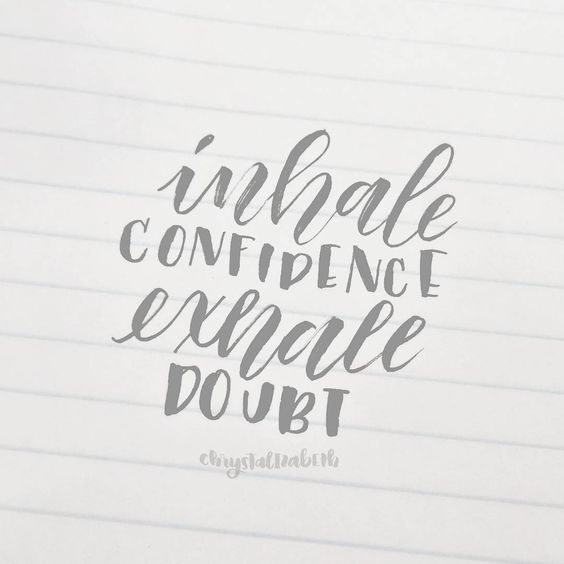 inhale
CONFIDENCE
exhale
DOUBT
chrystalizabeth